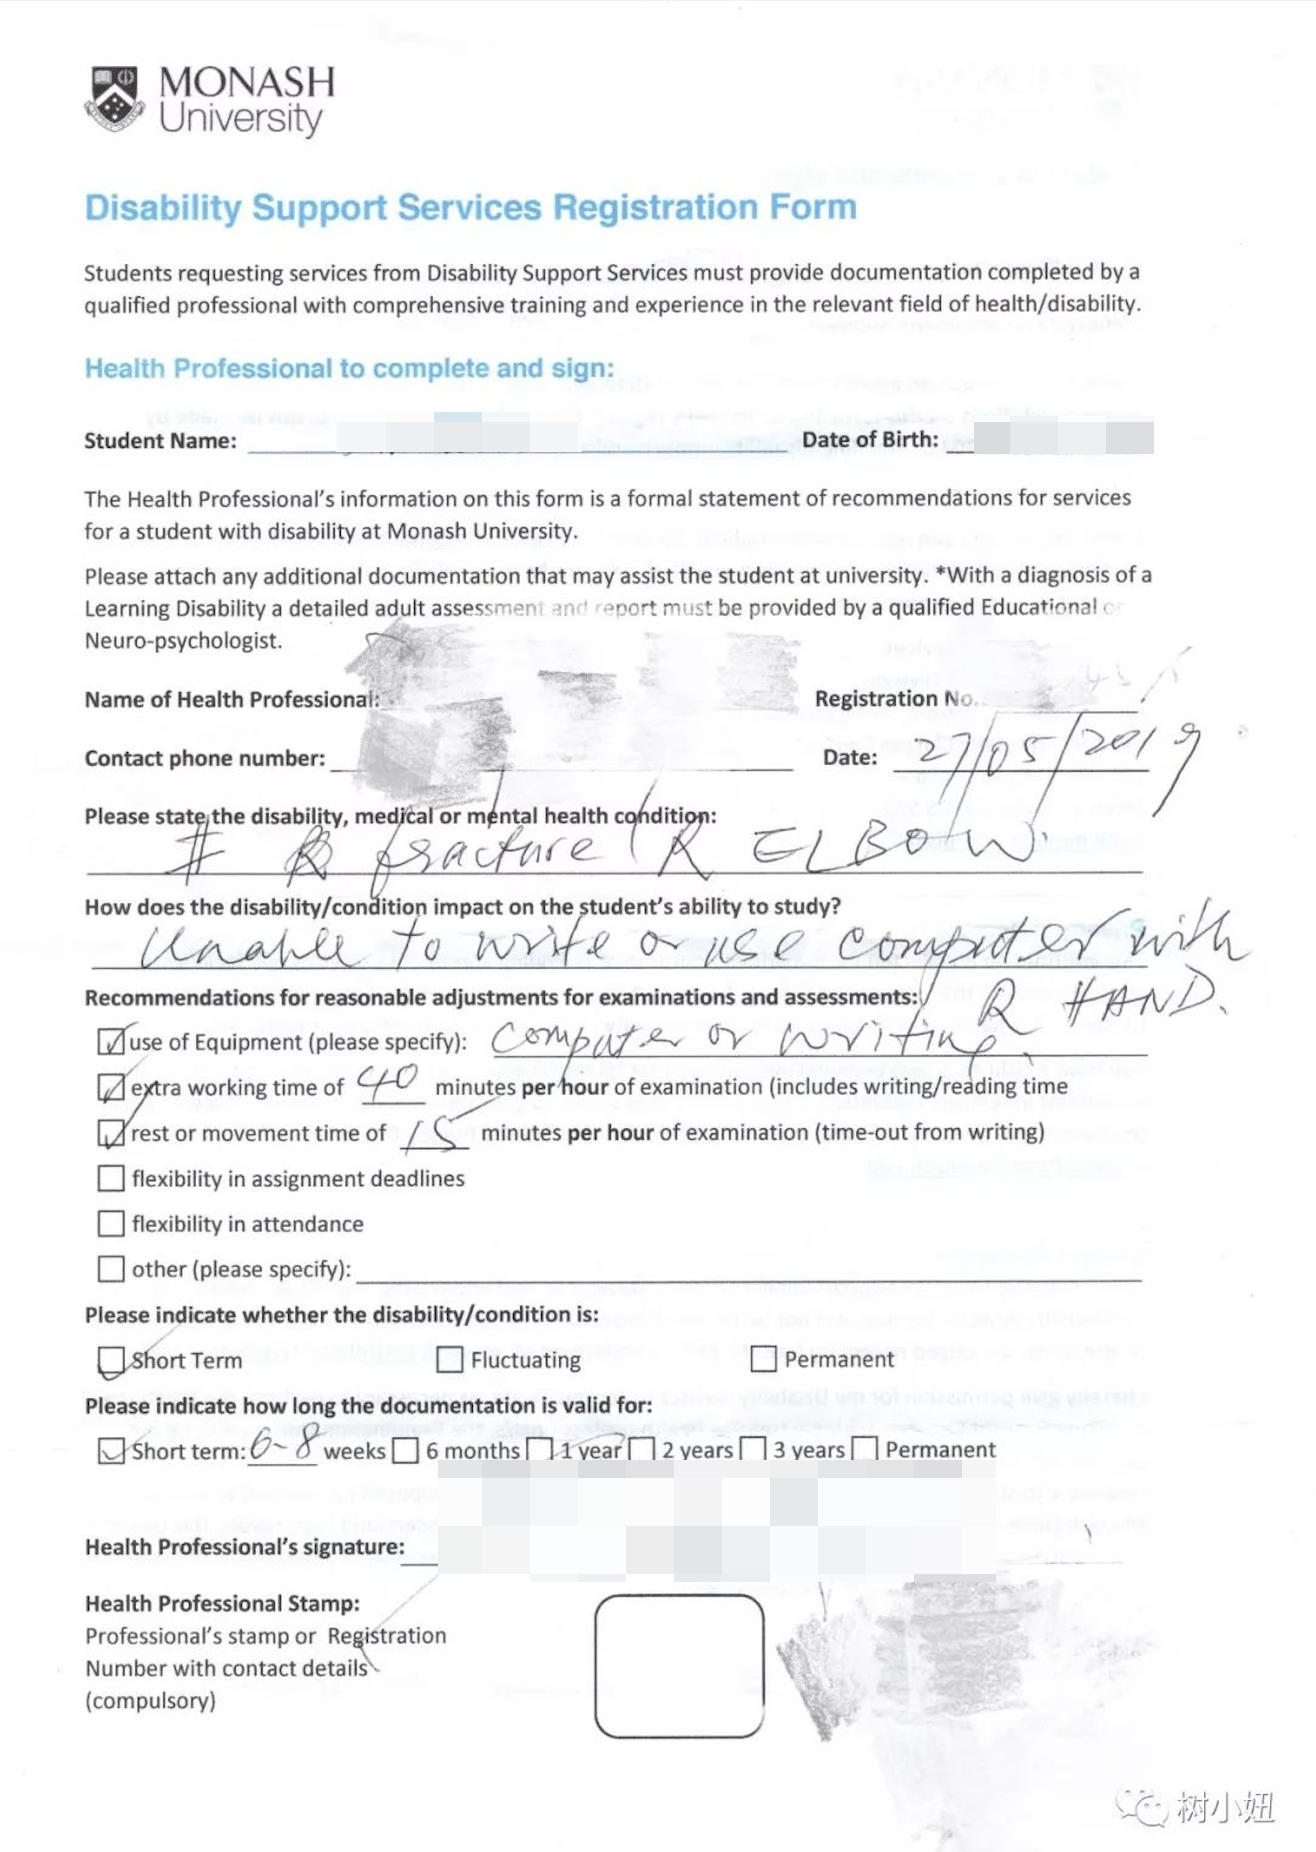 MONASH
University
Disability Support Services Registration Form
Students requesting services from Disability Support Services must provide documentation completed by a
qualified professional with comprehensive training and experience in the relevant field of health/disability.
Health Professional to complete and sign:
Student Name: Date of Birth:
The Health Professional's information on this form is a formal statement of recommendations for services
for a student with disability at Monash University.
Please attach any additional documentation that may assist the student at university. *With a diagnosis of a
Learning Disability a detailed adult assessment and report must be provided by a qualified Educational
Neuro-psychologist.
Name of Health Professional: Registration No.
Contact phone number: Date: 27/05/2019
Please state the disability, medical or mental health condition:
# fracture (R ELBOW
How does the disability/condition impact on the student's ability to study?
Unable to write or use computer with
Recommendations for reasonable adjustments for examinations and assessments: R HAND.
use of Equipment (please specify): computer or writing
extra working time of 40 minutes per hour of examination (includes writing/reading time
rest or movement time of 15 minutes per hour of examination (time-out from writing)
flexibility in assignment deadlines
flexibility in attendance
other (please specify):
Please indicate whether the disability/condition is:
Short Term Fluctuating Permanent
Please indicate how long the documentation is valid for:
Short term: 6-8 weeks 6 months 1 year 2 years 3 years Permanent
Health Professional's signature:
Health Professional Stamp:
Professional's stamp or Registration
Number with contact details
(compulsory)
树小妞